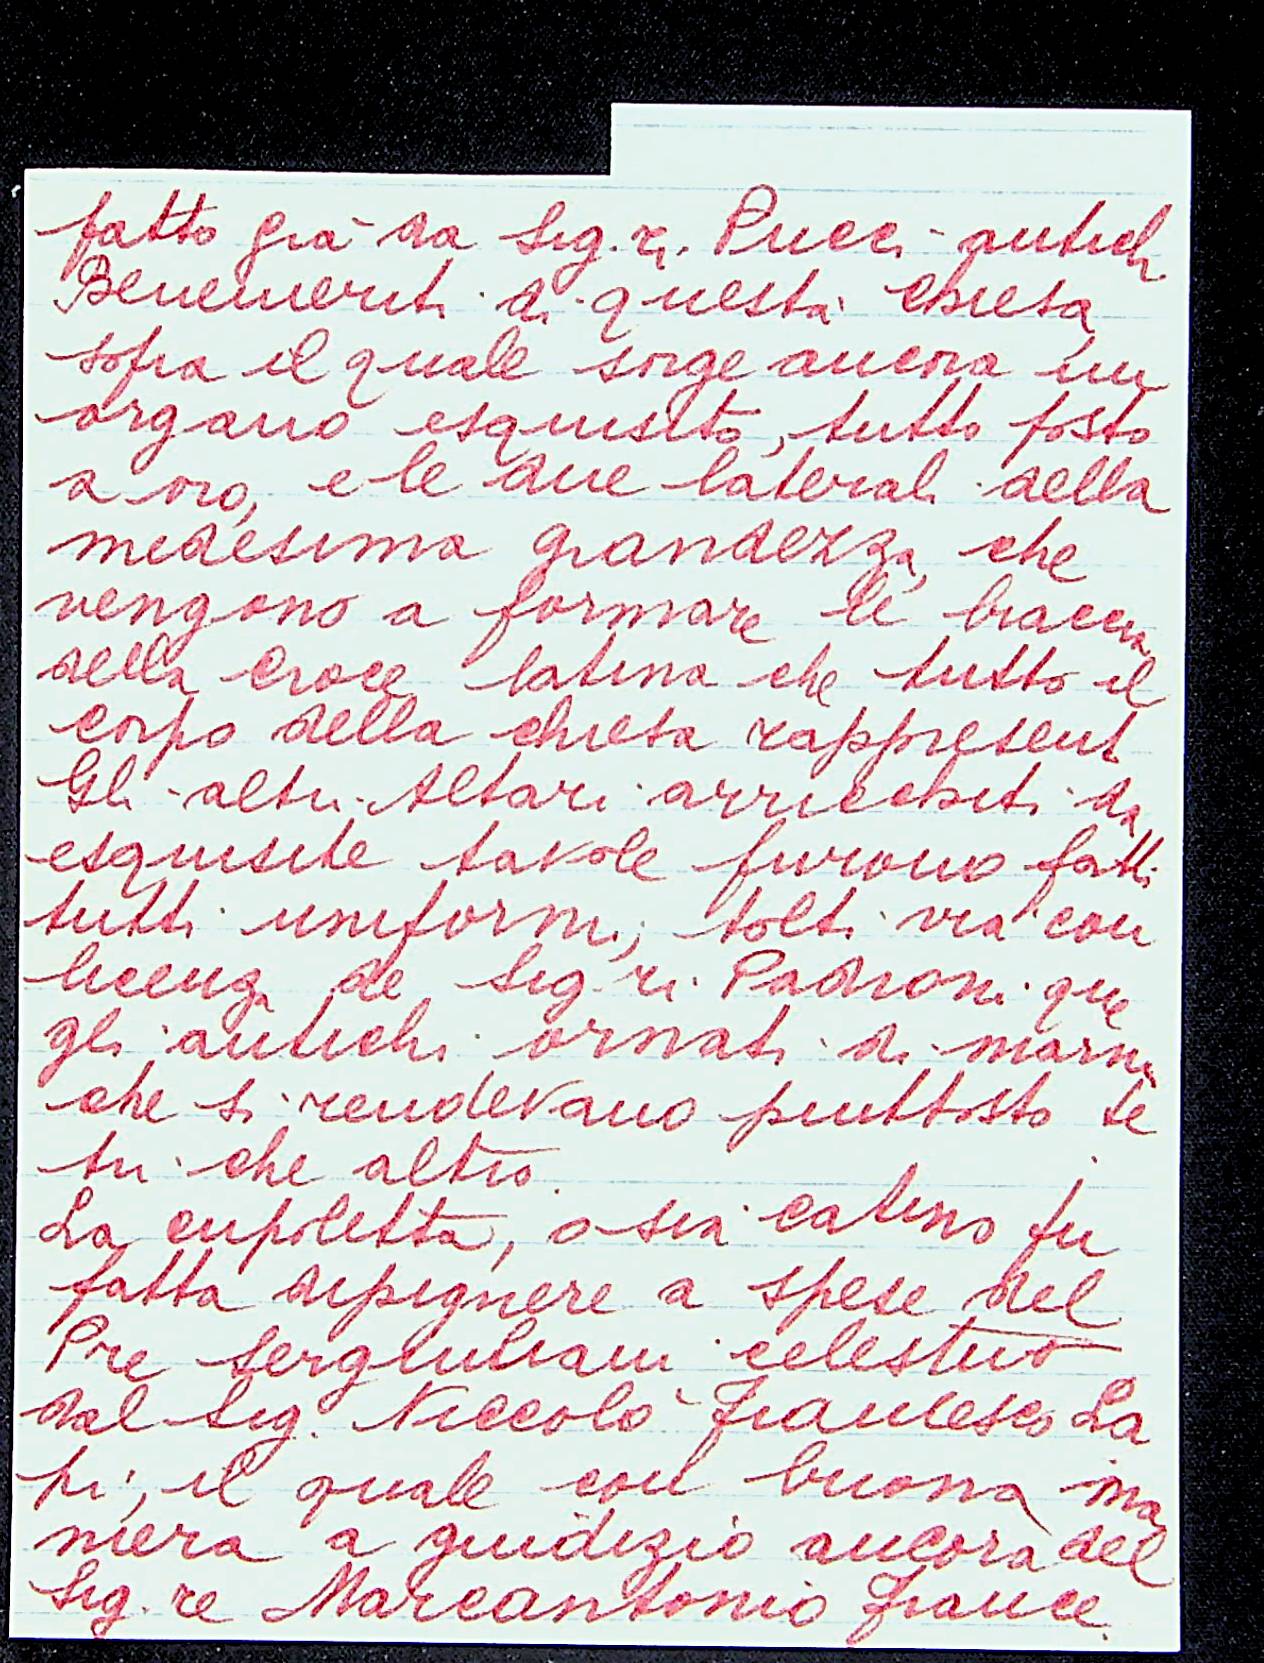 fatto già da Sig.ri Pucci antichi
Benemeriti di questa chiesa,
sopra il quale sorge ancora un
organo esquisito, tutto posto
a oro, e le due laterali della
medesima grandezza, che
vengono a formare le braccia
della croce latina che tutto il
corpo della chiesa rappresent
Gli altri Altari arricchiti da
esquisite tavole furono fatti
tutti uniformi, tolti via con
licenza de Sig.ri Padroni que
gli antichi ornati di marmi
che si rendevano piuttosto te
tri che altro.
La cupoletta, o sia catino fu
fatta dipignere a spese del
Pre Sergiuliani celestino
dal Sig. Niccolò Francesco La
pi, il quale con buona ma
niera a giudizio ancora del
Sig.re Marcantonio France